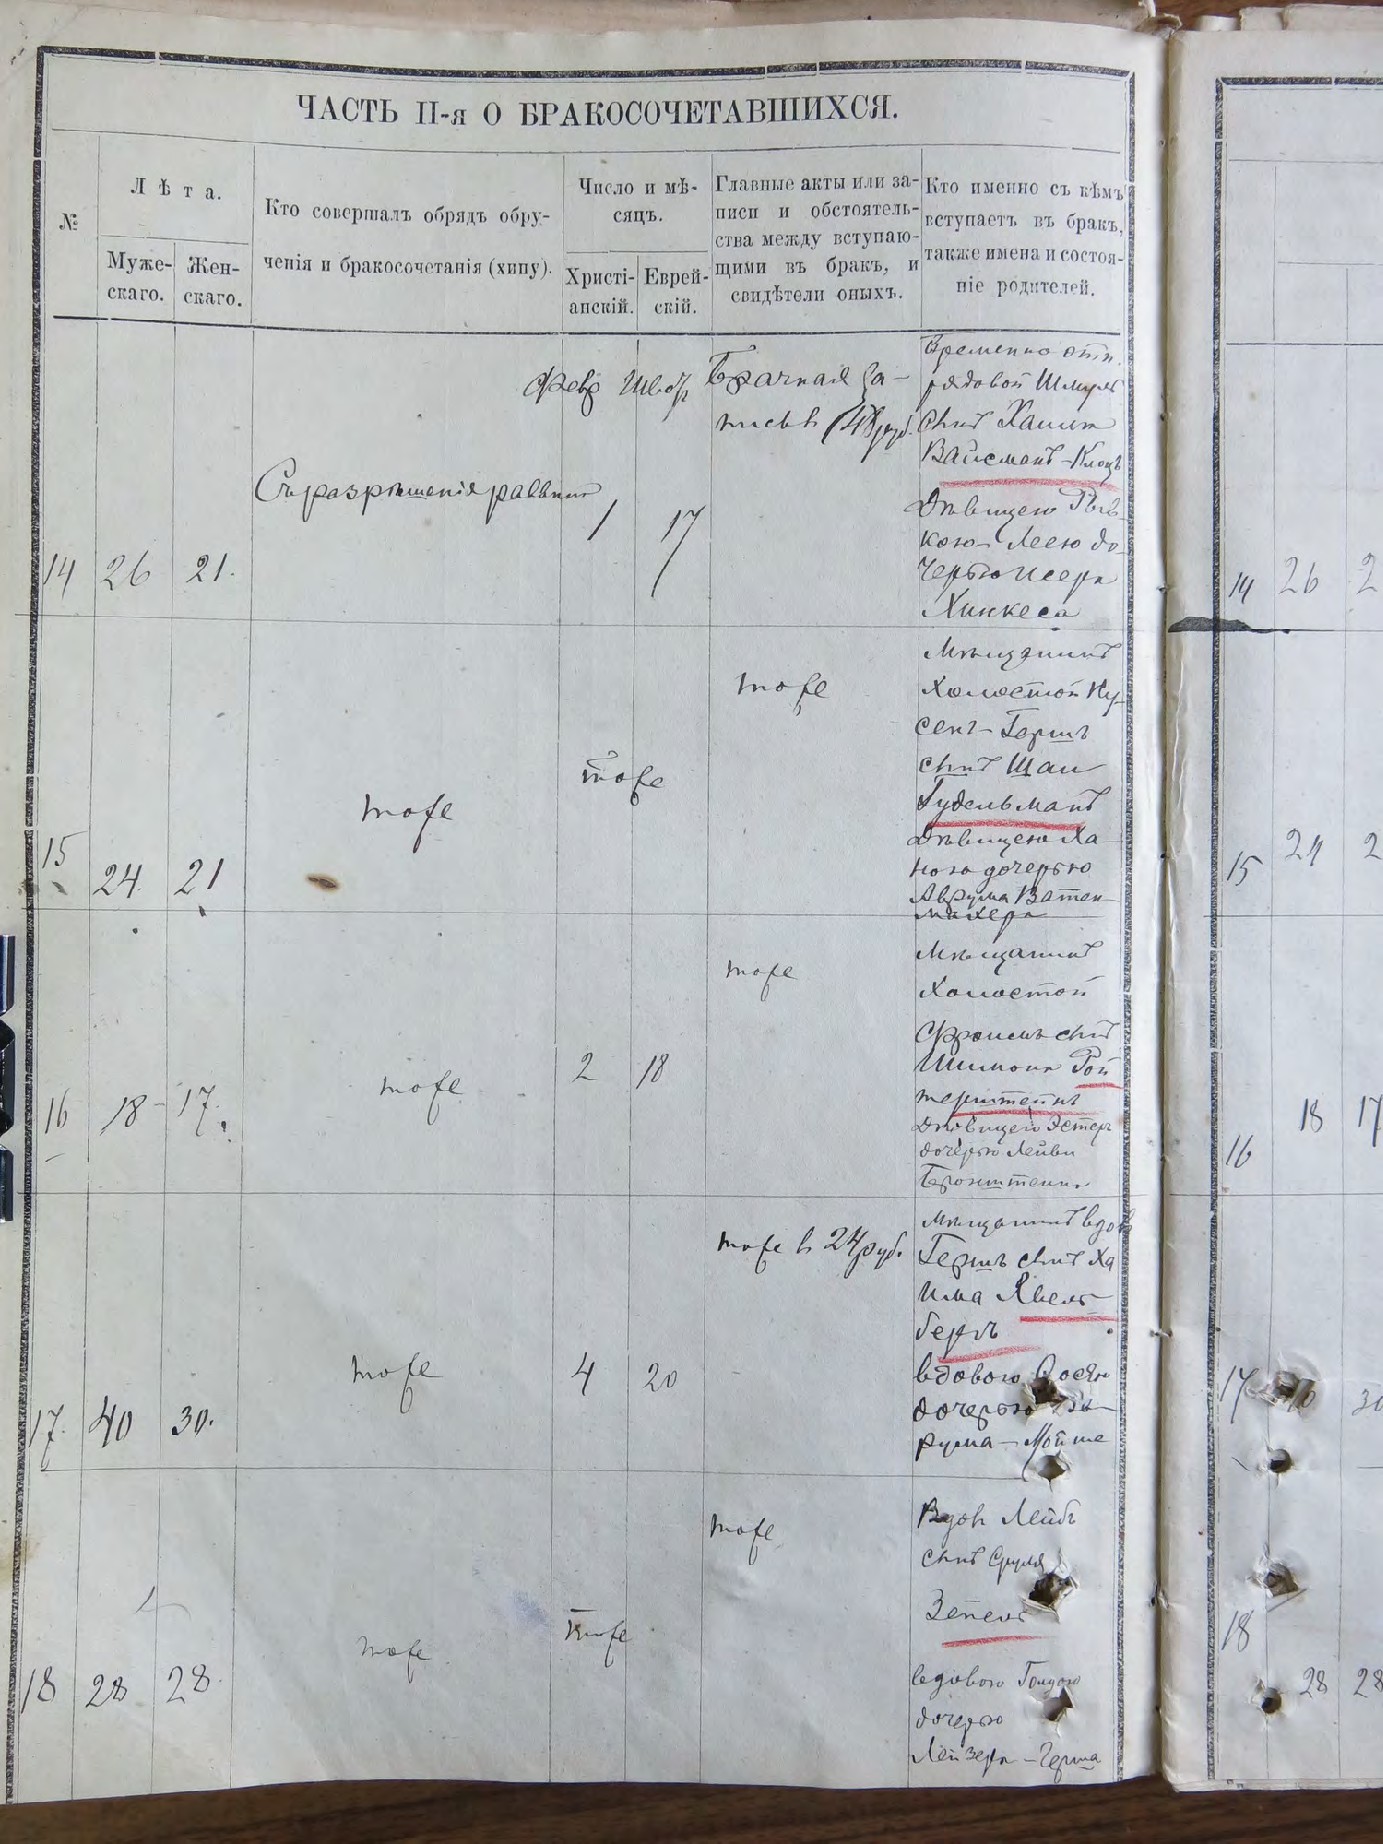 ЧАСТЬ II-я О БРАКОСОЧЕТАВШИХСЯ.
№
Лѣта.
Муже-
скаго.
Жен-
скаго.
Кто совершалъ обрядъ обру-
ченія и бракосочетанія (хипу).
Число и мѣ-
сяцъ.
Христі-
анскій.
Еврей-
скій.
Главные акты или за-
писи и обстоятель-
ства между вступаю-
щими въ бракъ, и
свидѣтели оныхъ.
Кто именно съ кѣмъ
вступаетъ въ бракъ,
также имена и состоя-
ніе родителей.
14
26
21.
Съ разрѣшенія раввина
Февр
1
17
Брачная за-
пись в 48 руб.
Временно отп.
рядовой Шмуль
сынъ Хаима
Вайсманъ-Клоцъ
Дѣвицею Рыв-
кою-Леею до-
черью Исера
Хинкеса
15
24
21
тоже
тоже
тоже
Мѣщанинъ
Холостой Ну-
сенъ-Гершъ
сынъ Шаи
Гудельманъ
Дѣвицею Ха
ною дочерью
Аврума Ватен-
махера
16
18
17.
тоже
2
18
тоже
Мѣщанинъ
Холостой
Фроимъ сынъ
Шимона Рой
терштейнъ
Дѣвицею Эстеръ
дочерью Лейви
Бронштейна
17.
40
30.
тоже
4
20
тоже в 24 руб.
Мѣщанинъ вдов
Гершъ сынъ Ха
има
бергъ
вдовою
дочерью
рума-Мойше
18
28
28.
тоже
тоже
тоже
Вдов Лейбъ
сынъ Сруля
Зепель
вдовою Голдою
дочерью
Лейзера-Герша
14
26
2
15
24
2
16
18
17
17
30
18
28
28